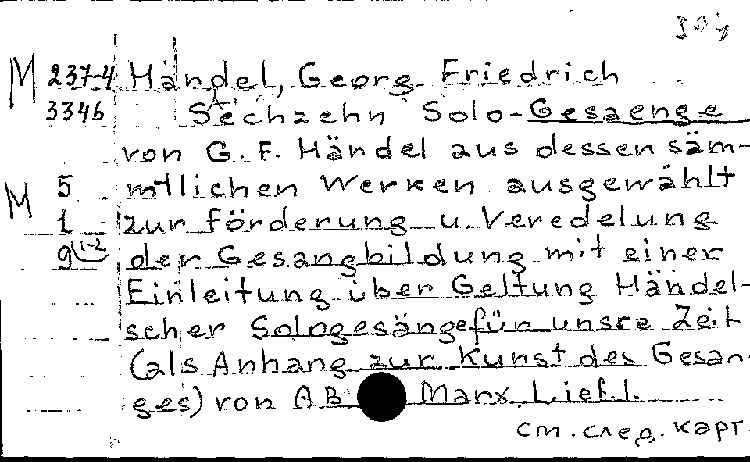 M 237-4 Händel, Georg Friedrich
3346 Sechzehn Solo-Gesaenge
von G. F. Händel aus dessen säm-
M 5 mtlichen Werken ausgewählt
1 zur Förderung u. Veredelung
9(1-2 der Gesangbildung mit einer
Einleitung über Geltung Händel-
scher Sologesänge für unsre Zeit
(als Anhang zur Kunst des Gesan-
ges) von AB Marx. Lief. 1.
ст. след. карт.